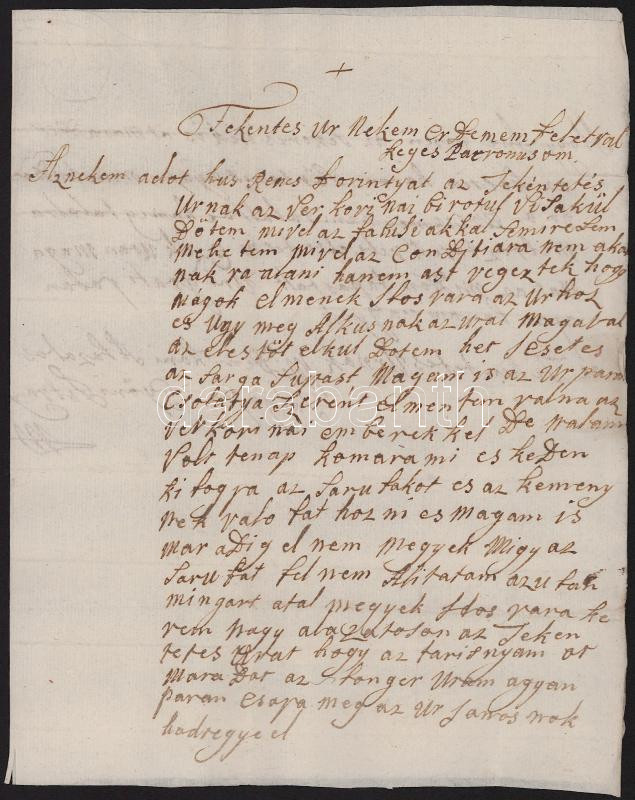 +
Tekentes Ur Nekem Erdemem felet val
keges Patronusom
Aznekem adot hus Renes forintyat az Tekéntetés
Urnak az Ver kori nai birotul Visakül
Dötem mivel az
mehetem mivel az Conditiara nem aka
nak ra alani hanem ast vegeztek hogy
magok elmenek Stos vara az Urhoz
es Ugy meg Alkusnak az ural Magaval
az elestöt elkul Dötem het Jesetes
az Sarga Sujtast Magam is az Ur paran
Csolatya Szerent elmentem valna az
Verkori nai emberekkel De walami
Volt tenap komara mi es keden
ki fogya az Saru fakot es az kemeny
nek valo fat hozni es magam is
mar adig el nem megyek Migy az
Saru fat fel nem Alitatam azutan
mingart atal megyek Stos vara ke
rem nagy alazatoson az Teken
tetes Urat hogy az tarisnyam ot
maradot az Stonger Uram agyan
paran csora meg az Ur Janos nok
hadregye el
darabanth